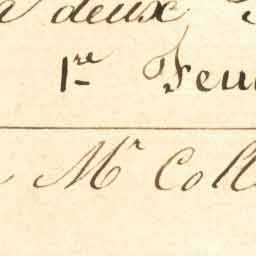 deux
1re Feu
Mr Coll